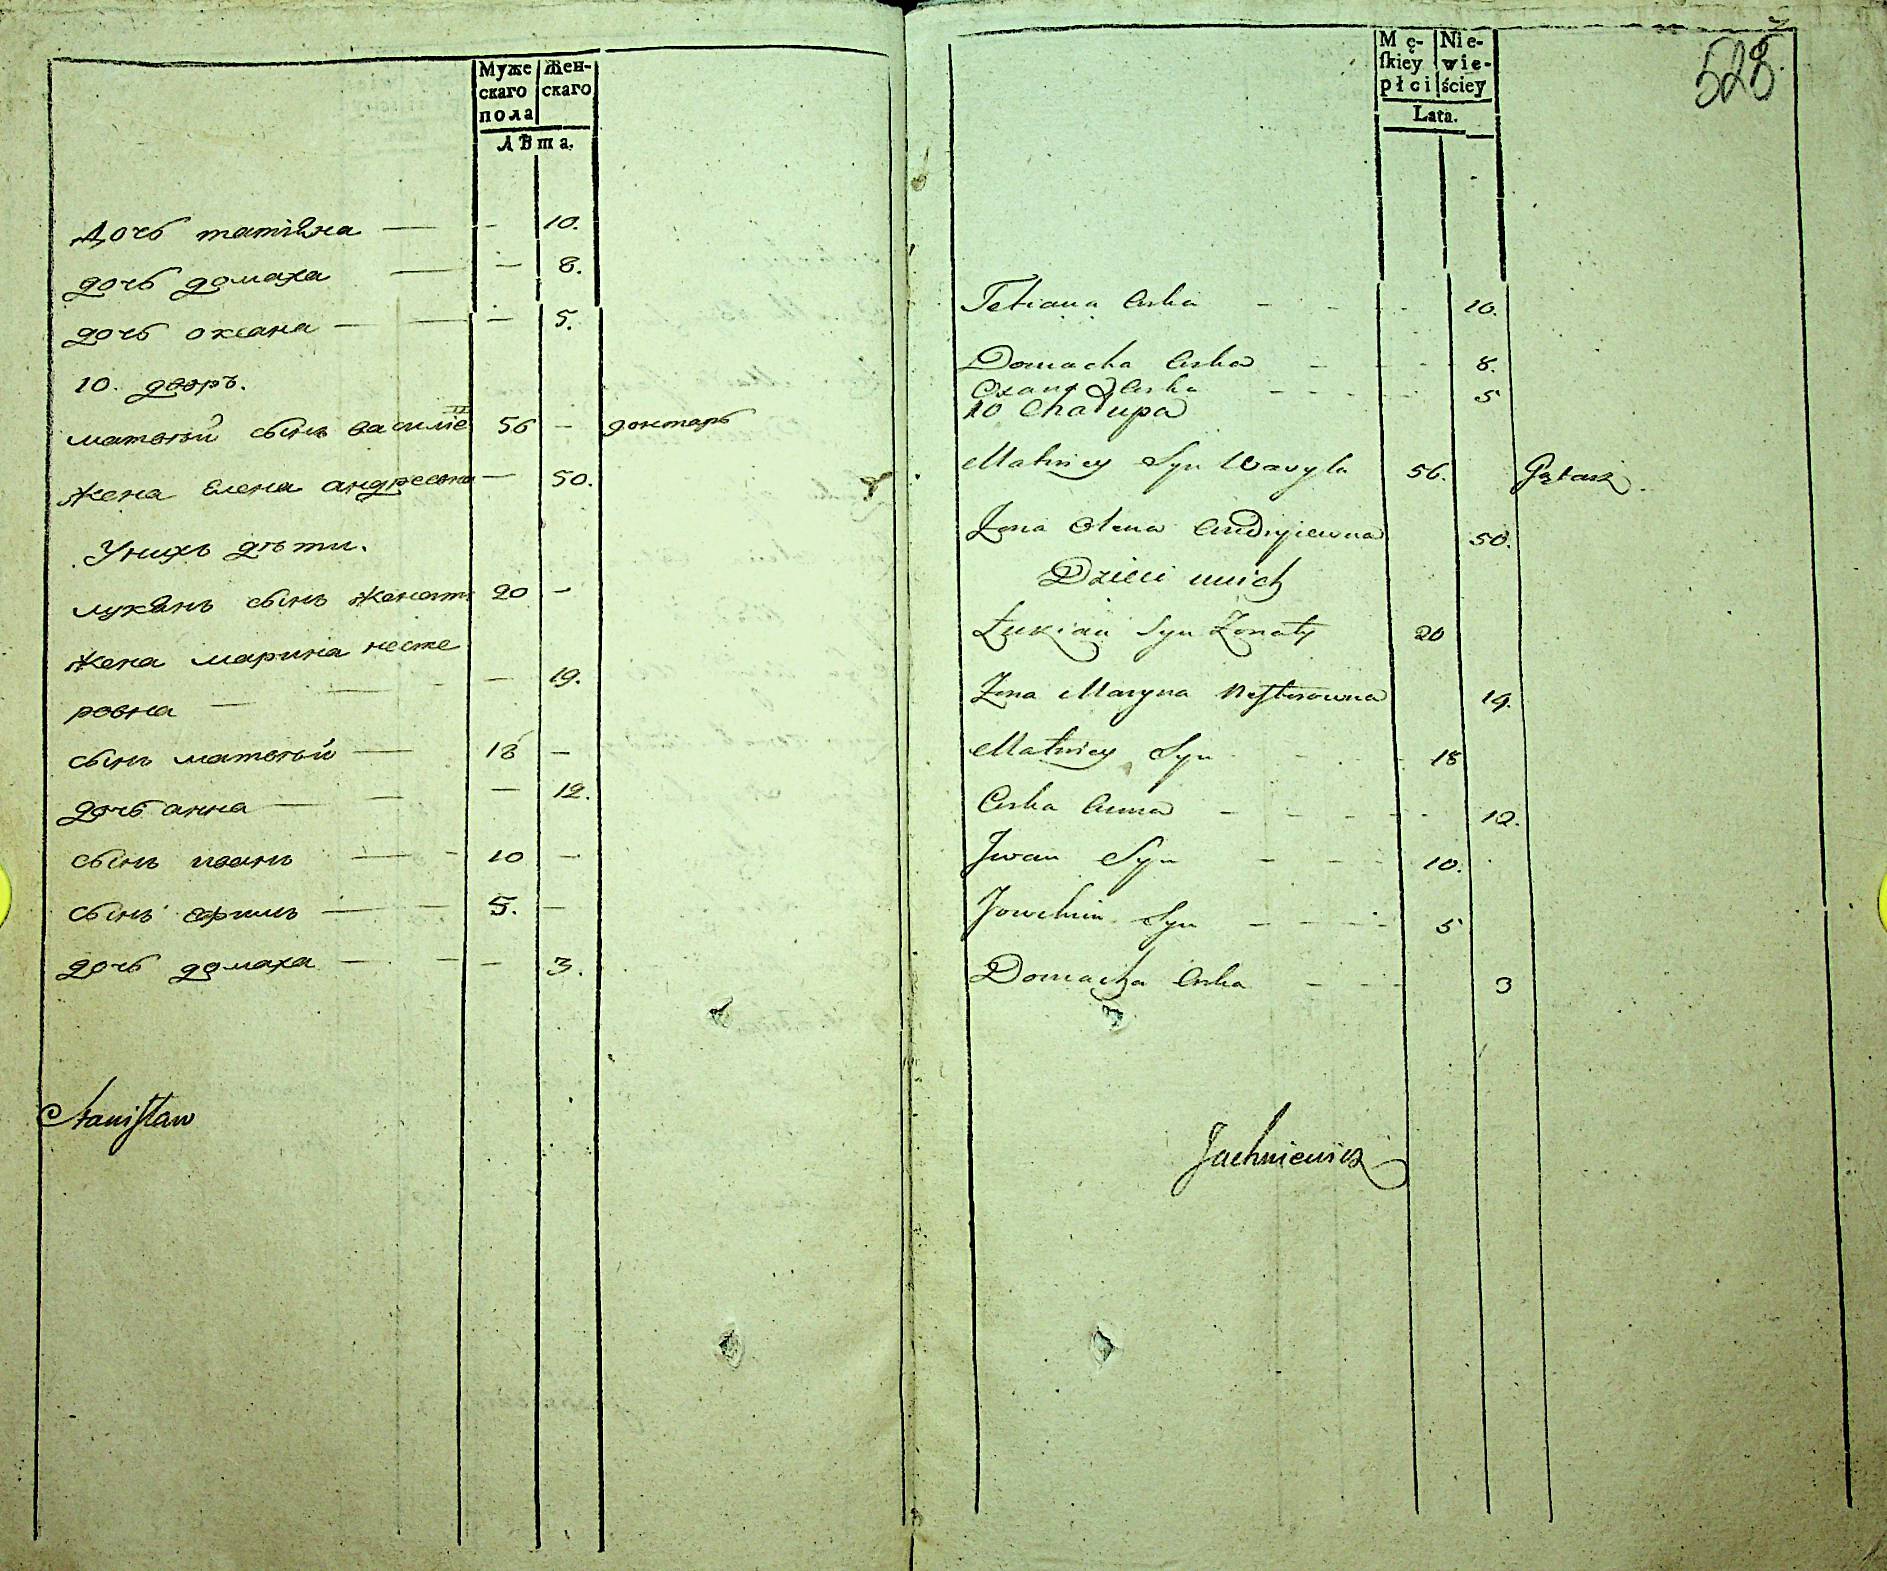 Муже Жен-
скаго скаго
пола
Лѣта.
Дочь татiяна — - 10.
дочь домаха — - 8.
дочь оксана — - 5.
10. дворъ.
матвѣй сынъ василiе 56 - донтарь
жена елена андреевна - 50.
Унихъ дѣти.
лукянъ сынъ женат. 20 -
жена марина несте
ровна — - 19.
сынъ матвѣй — 18 -
дочь анна — - 12.
сынъ иванъ — 10 -
сынъ ефимъ — 5. -
дочь домаха — - 3.
Stanisław
528.
Mę- Nie-
skiey wie-
płci ściey
Lata.
Tetiana Curka - - - 10.
Domacha Curka - - - 8.
Oxana Curka - - - 5
10 Chałupa
Matwiey Syn Wasyla 56.
Żona Olena Andryiewna 50.
Dzieci unich
Łukian Syn Żonaty 20
Żona Maryna Nesterowna 19.
Matwiey Syn - - - 18
Curka Anna - - - 12.
Jwan Syn - - - 10.
Jowchim Syn - - - 5
Domacha Curka - - - 3
Jachniewicz